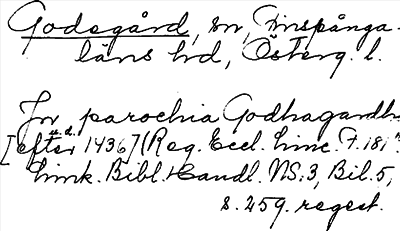 Godegård, sn, Finspånga-
läns hd, Österg. l.
In parochia Godhagardh
[efter u.d. 1436] (Reg. Eccl. Linc. F. 181
Link. Bibl. Handl. NS:3, Bil. 5,
s. 259. regest.